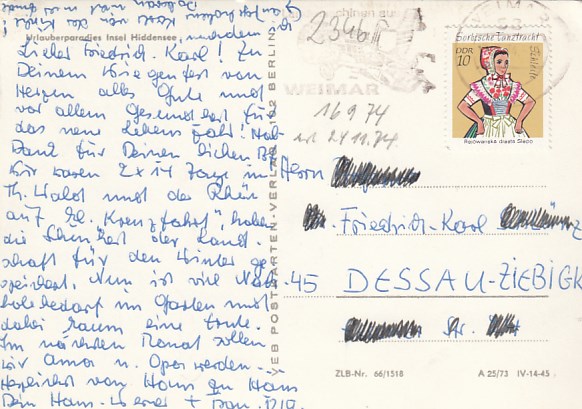 Urlauberparadies Insel Hiddensee
Lieber Friedrich-Karl! Zu
Deinem Wiegenfest von
Herzen alles Gute und
vor allem Gesundheit für
das neue Lebensjahr! Hab
Dank für Deinen lieben
Wir waren 2 x 14 Tage im
Th. Wald und der Rhön
auf "Kreuzfahrt", haben
die Schönheit der Land-
schaft für den Winter ge-
speichert. Nun ist viel Nach-
holebedarf im Garten und
dabei kaum eine Ernte.
Im nächsten Monat sollen
wir Oma u. Opa werden.
Herzlichst von Haus zu Haus
Dein Hans-Werner + Frau
VEB POSTKARTEN-VERLAG · 102 BERLIN
2346
WEIMAR
16.9.74
24.11.74
Sorbische Tanztracht
DDR
10
Schleife
Rejowańska drasta Slepo
Herrn
Friedrich-Karl
45 DESSAU-ZIEBIGK
Str.
ZLB-Nr. 66/1518
A 25/73 IV-14-45